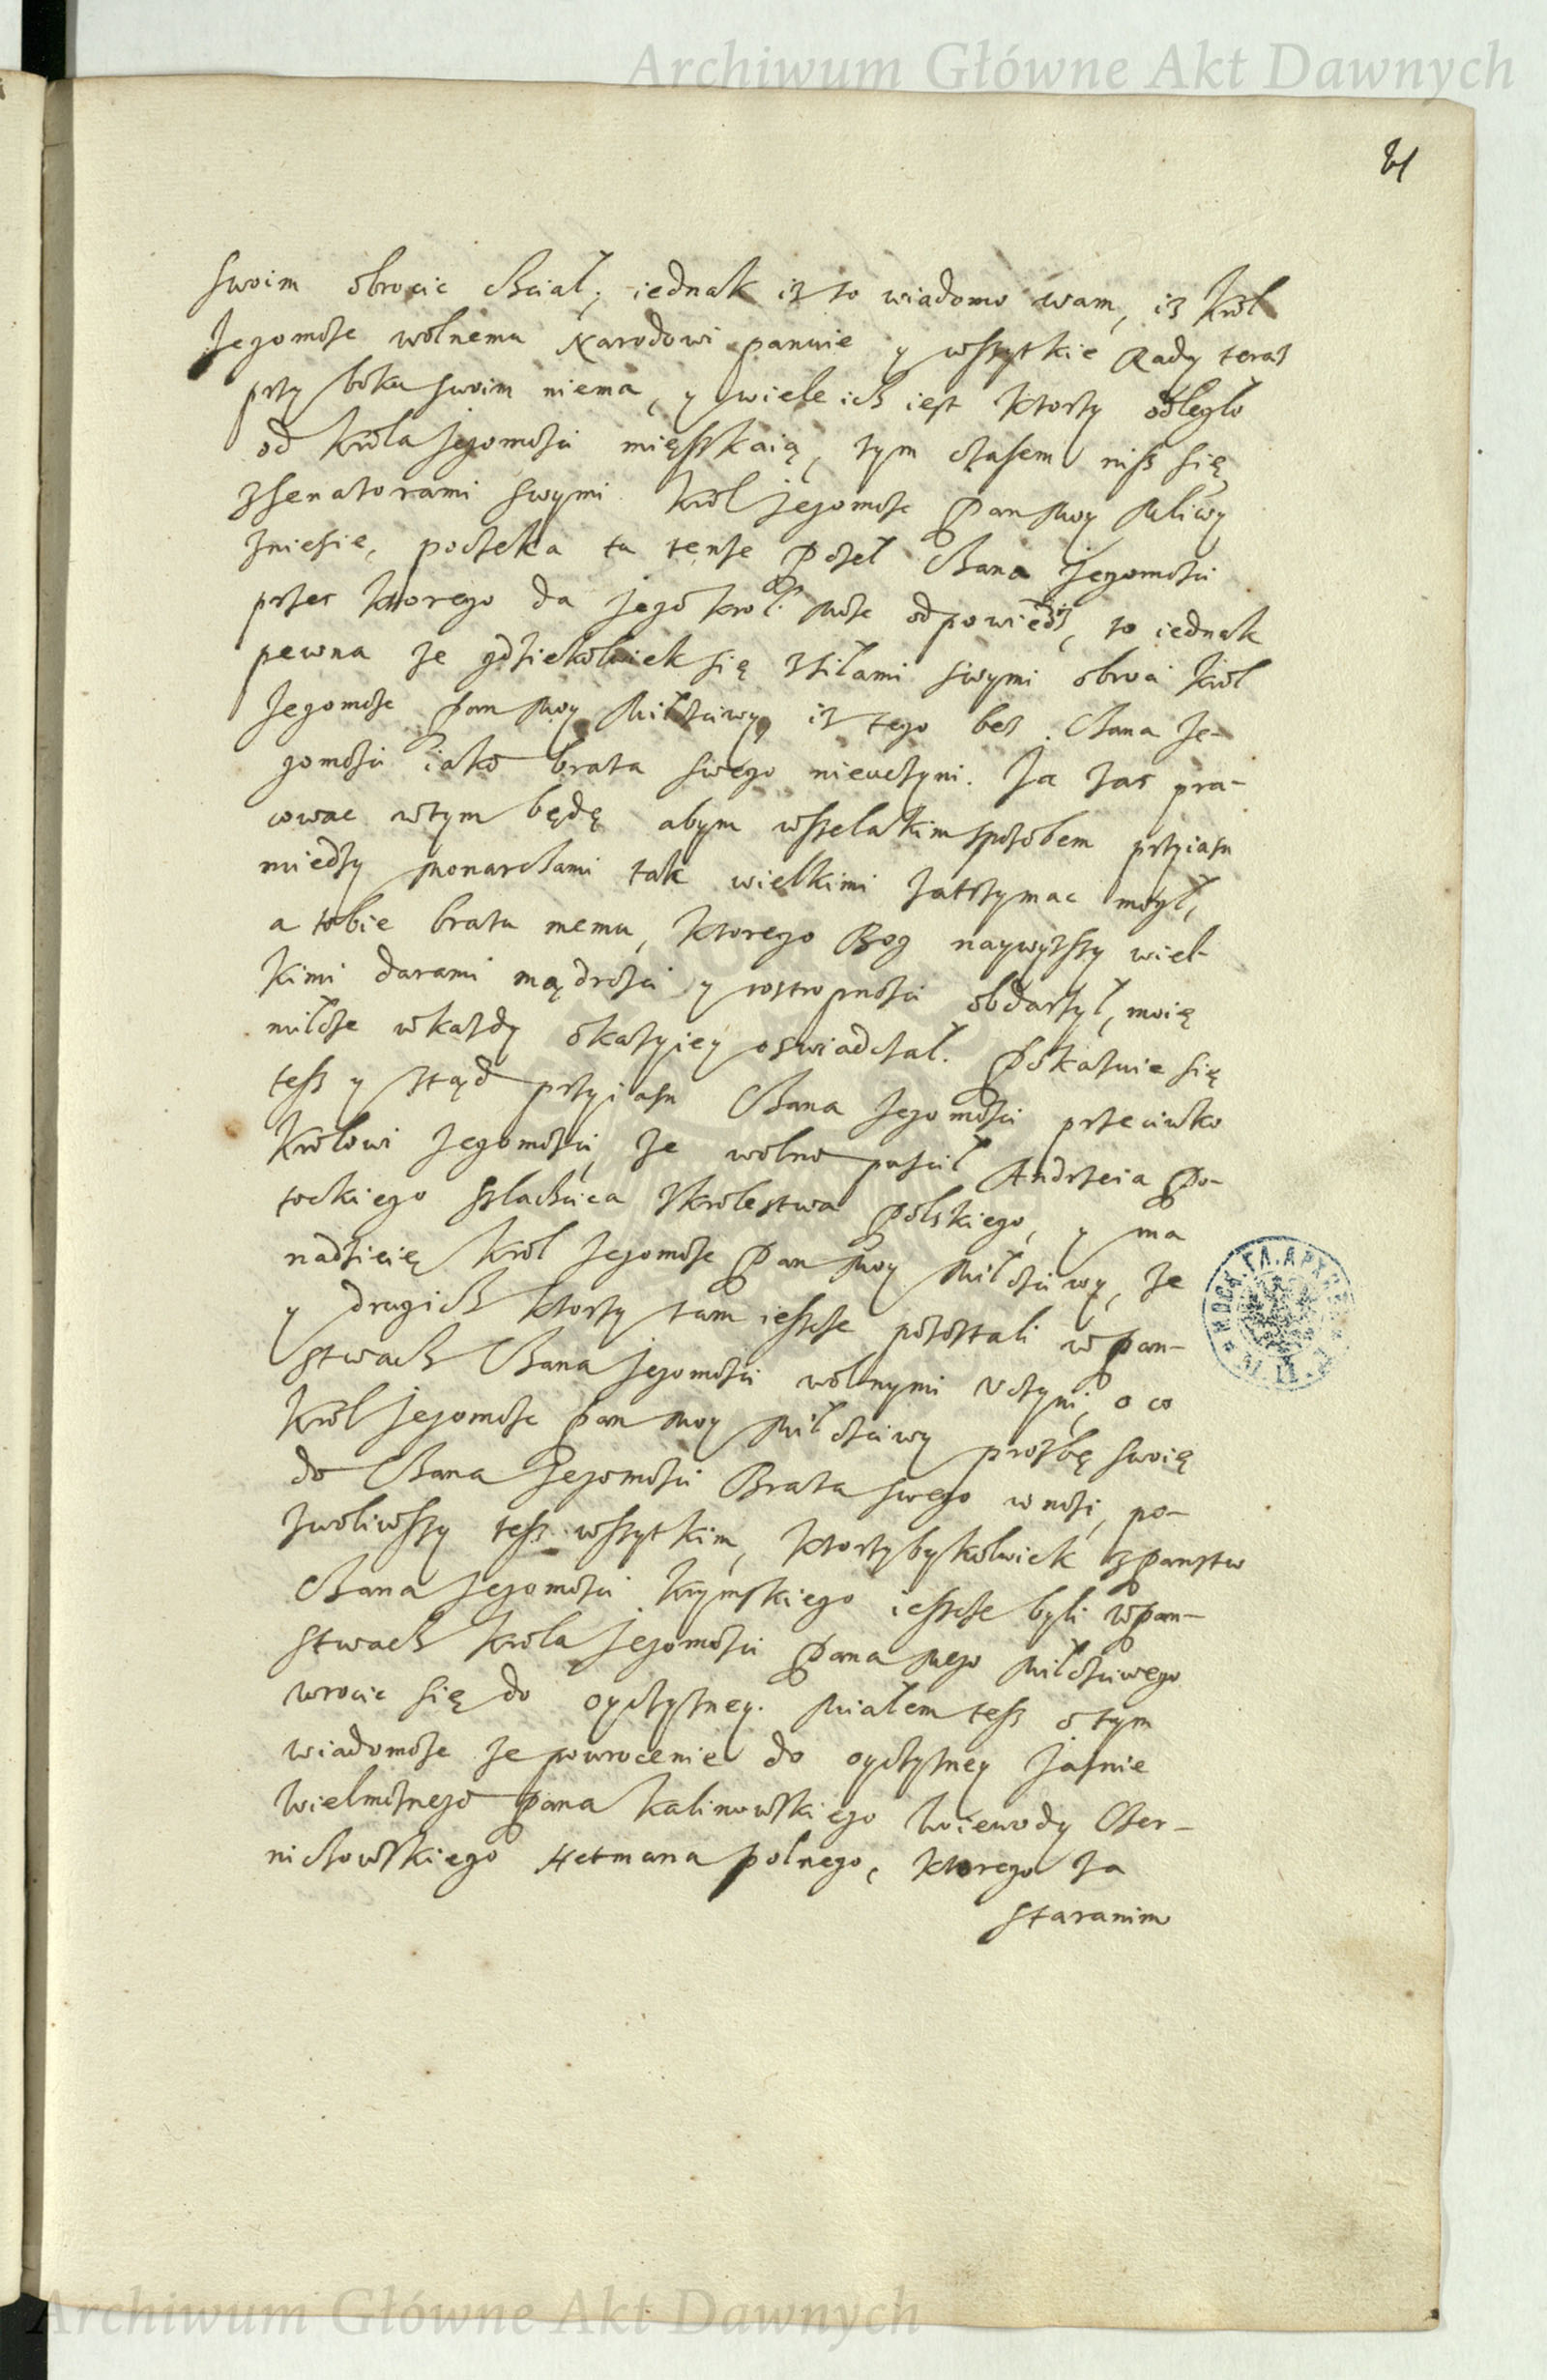 Archiwum Główne Akt Dawnych
21
swoim obrocic chciał, iednak iz to wiadomo wam, iz Król
Jegomosc wolnemu Narodowi panuie y wszytkie Rady teraz
przy boku swoim niema, y wiele ich iest ktorzy odległo
od Króla Jegomosci mięszkaią, tym czasem nisz się
z Senatorami swymi Król Jegomosc Pan Moy Mliwy
zniesie, poczeka tu tenze Poseł Chana Jegomosci
przez ktorego da Jego Krol. Mosc odpowiedz, to iednak
pewna ze gdziekolwiek się zsiłami swymi obroci Król
Jegomosc Pan Moy Miłosciwy, iz tego bez Chana Je-
gomosci iako brata swego nieuczyni. Ja zas pra-
cowac wtym będę abym wszelakim sposobem przyiasn
miedzy Monarchami tak wielkimi zatrzymac mogł,
a tobie bratu memu, ktorego Bog naywyzszy wiel-
kimi darami mądrosci y rostropnosci obdarzył, moię
miłosc wkazdy okazyiey oswiadczał. Pokazuie się
tesz y ztąd przyiasn Chana Jegomosci przeciwko
Krolowi Jegomosci, ze wolno puscił Andrzeia Po-
tockiego szlachcica Zkrolestwa Polskiego, y ma
nadzieię Król Jegomosc Pan Moy Miłosciwy, ze
y drugich ktorzy tam ieszcze pozostali w Pan-
stwach Chana Jegomosci wolnymi Vczyni, o co
Król Jegomosc Pan Moy Miłosciwy prozbę swoię
do Chana Jegomosci Brata swego wnosi, po-
zwoliwszy tesz wszytkim, ktorzybykolwiek z Panstw
Chana Jegomosci Krymskiego ieszcze byli w Pan-
stwach Krola Jegomosci Pana Mego Miłosciwego
wrocic się do oyczyzney. Miałem tesz o tym
wiadomosc ze powrocenie do oyczyzney Jasnie
Wielmoznego Pana Kalinowskiego Woiewody Czer-
nichowskiego Hetmana polnego, ktorego za
staranim
Archiwum Główne Akt Dawnych